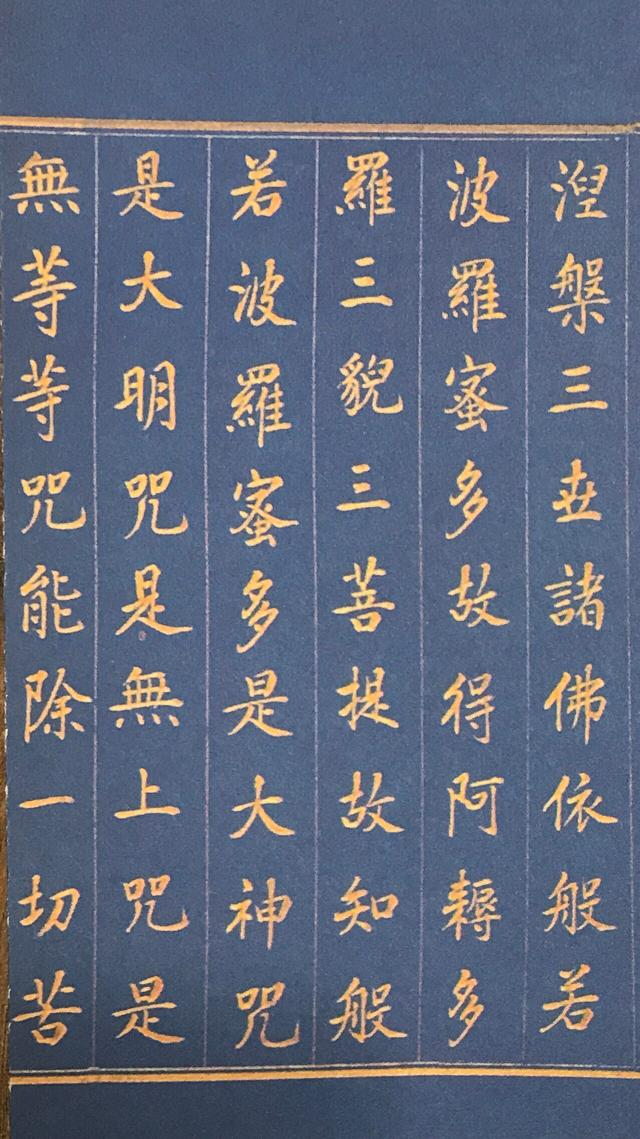 涅槃三世諸佛依般若
波羅蜜多故得阿耨多
羅三貌三菩提故知般
若波羅蜜多是大神咒
是大明咒是無上咒是
無等等咒能除一切苦